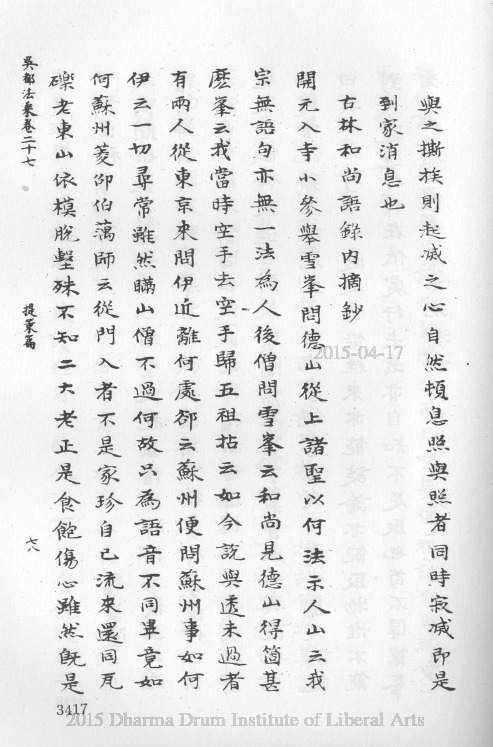 與之撕挨則起滅之心自然頓息照與照者同時寂滅即是
到家消息也
古林和尚語錄內摘鈔
開元入寺小參舉雪峯問德山從上諸聖以何法示人山云我
宗無語句亦無一法為人後僧問雪峯云和尚見德山得箇甚
麽峯云我當時空手去空手歸五祖拈云如今說與透未過者
有兩人從東京來問伊近離何處郤云蘇州便問蘇州事如何
伊云一切尋常雖然瞞山僧不過何故只為語音不同畢竟如
何蘇州菱邵伯藕師云從門入者不是家珍自己流來還同瓦
礫老東山依模脫墼殊不知二大老正是食飽傷心雖然既是
吳都法乘卷二十七
提稟篇
六八
3417
2015-04-17
2015 Dharma Drum Institute of Liberal Arts